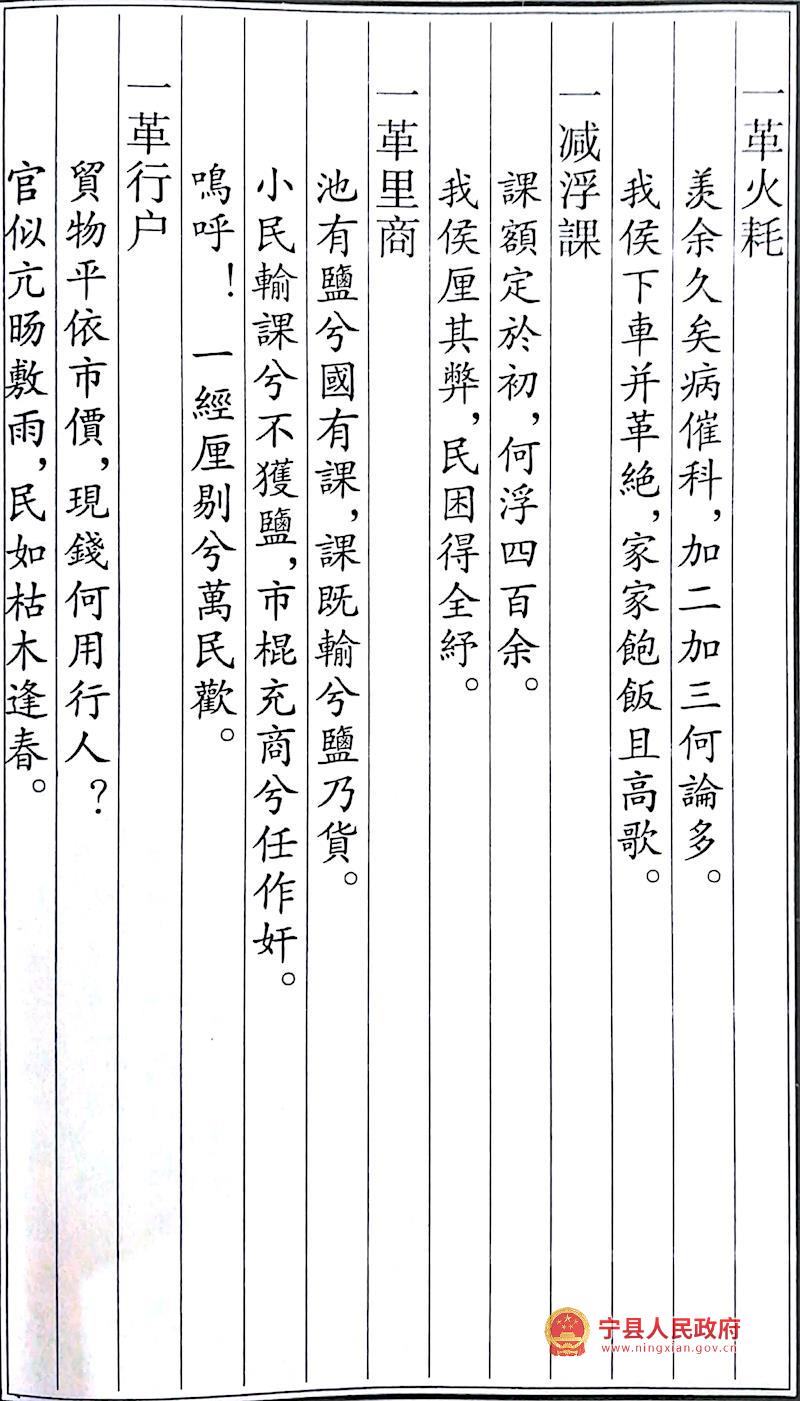 一革火耗
羨余久矣病催科，加二加三何論多。
我侯下車并革絶，家家飽飯且高歌。
一减浮課
課額定於初，何浮四百余。
我侯厘其弊，民困得全紓。
一革里商
池有鹽兮國有課，課既輸兮鹽乃貨。
小民輸課兮不獲鹽，市棍充商兮任作奸。
嗚呼！一經厘剔兮萬民歡。
一革行户
貿物平依市價，現錢何用行人？
官似亢暘敷雨，民如枯木逢春。
宁县人民政府
www.ningxian.gov.cn